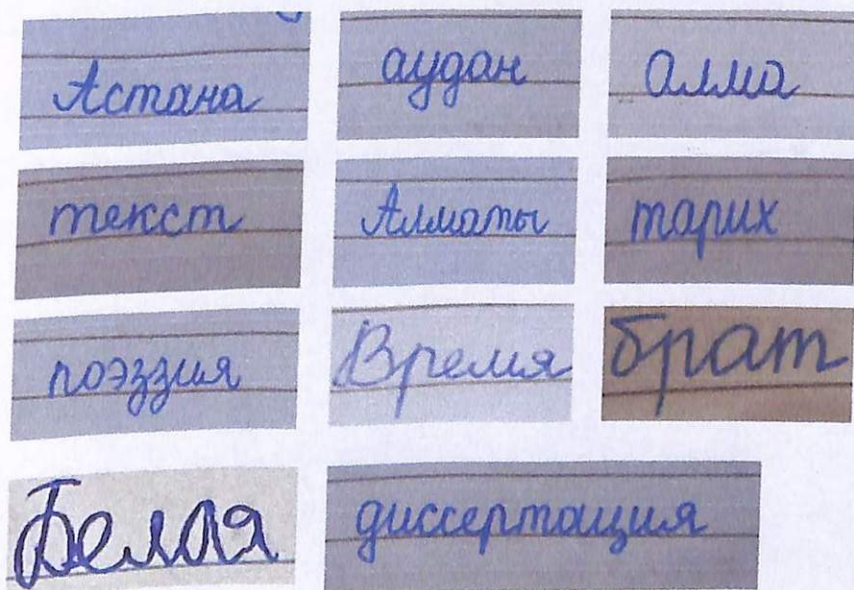 Астана аудан алма
текст Алматы тарих
поэззия Время брат
Белая диссертация